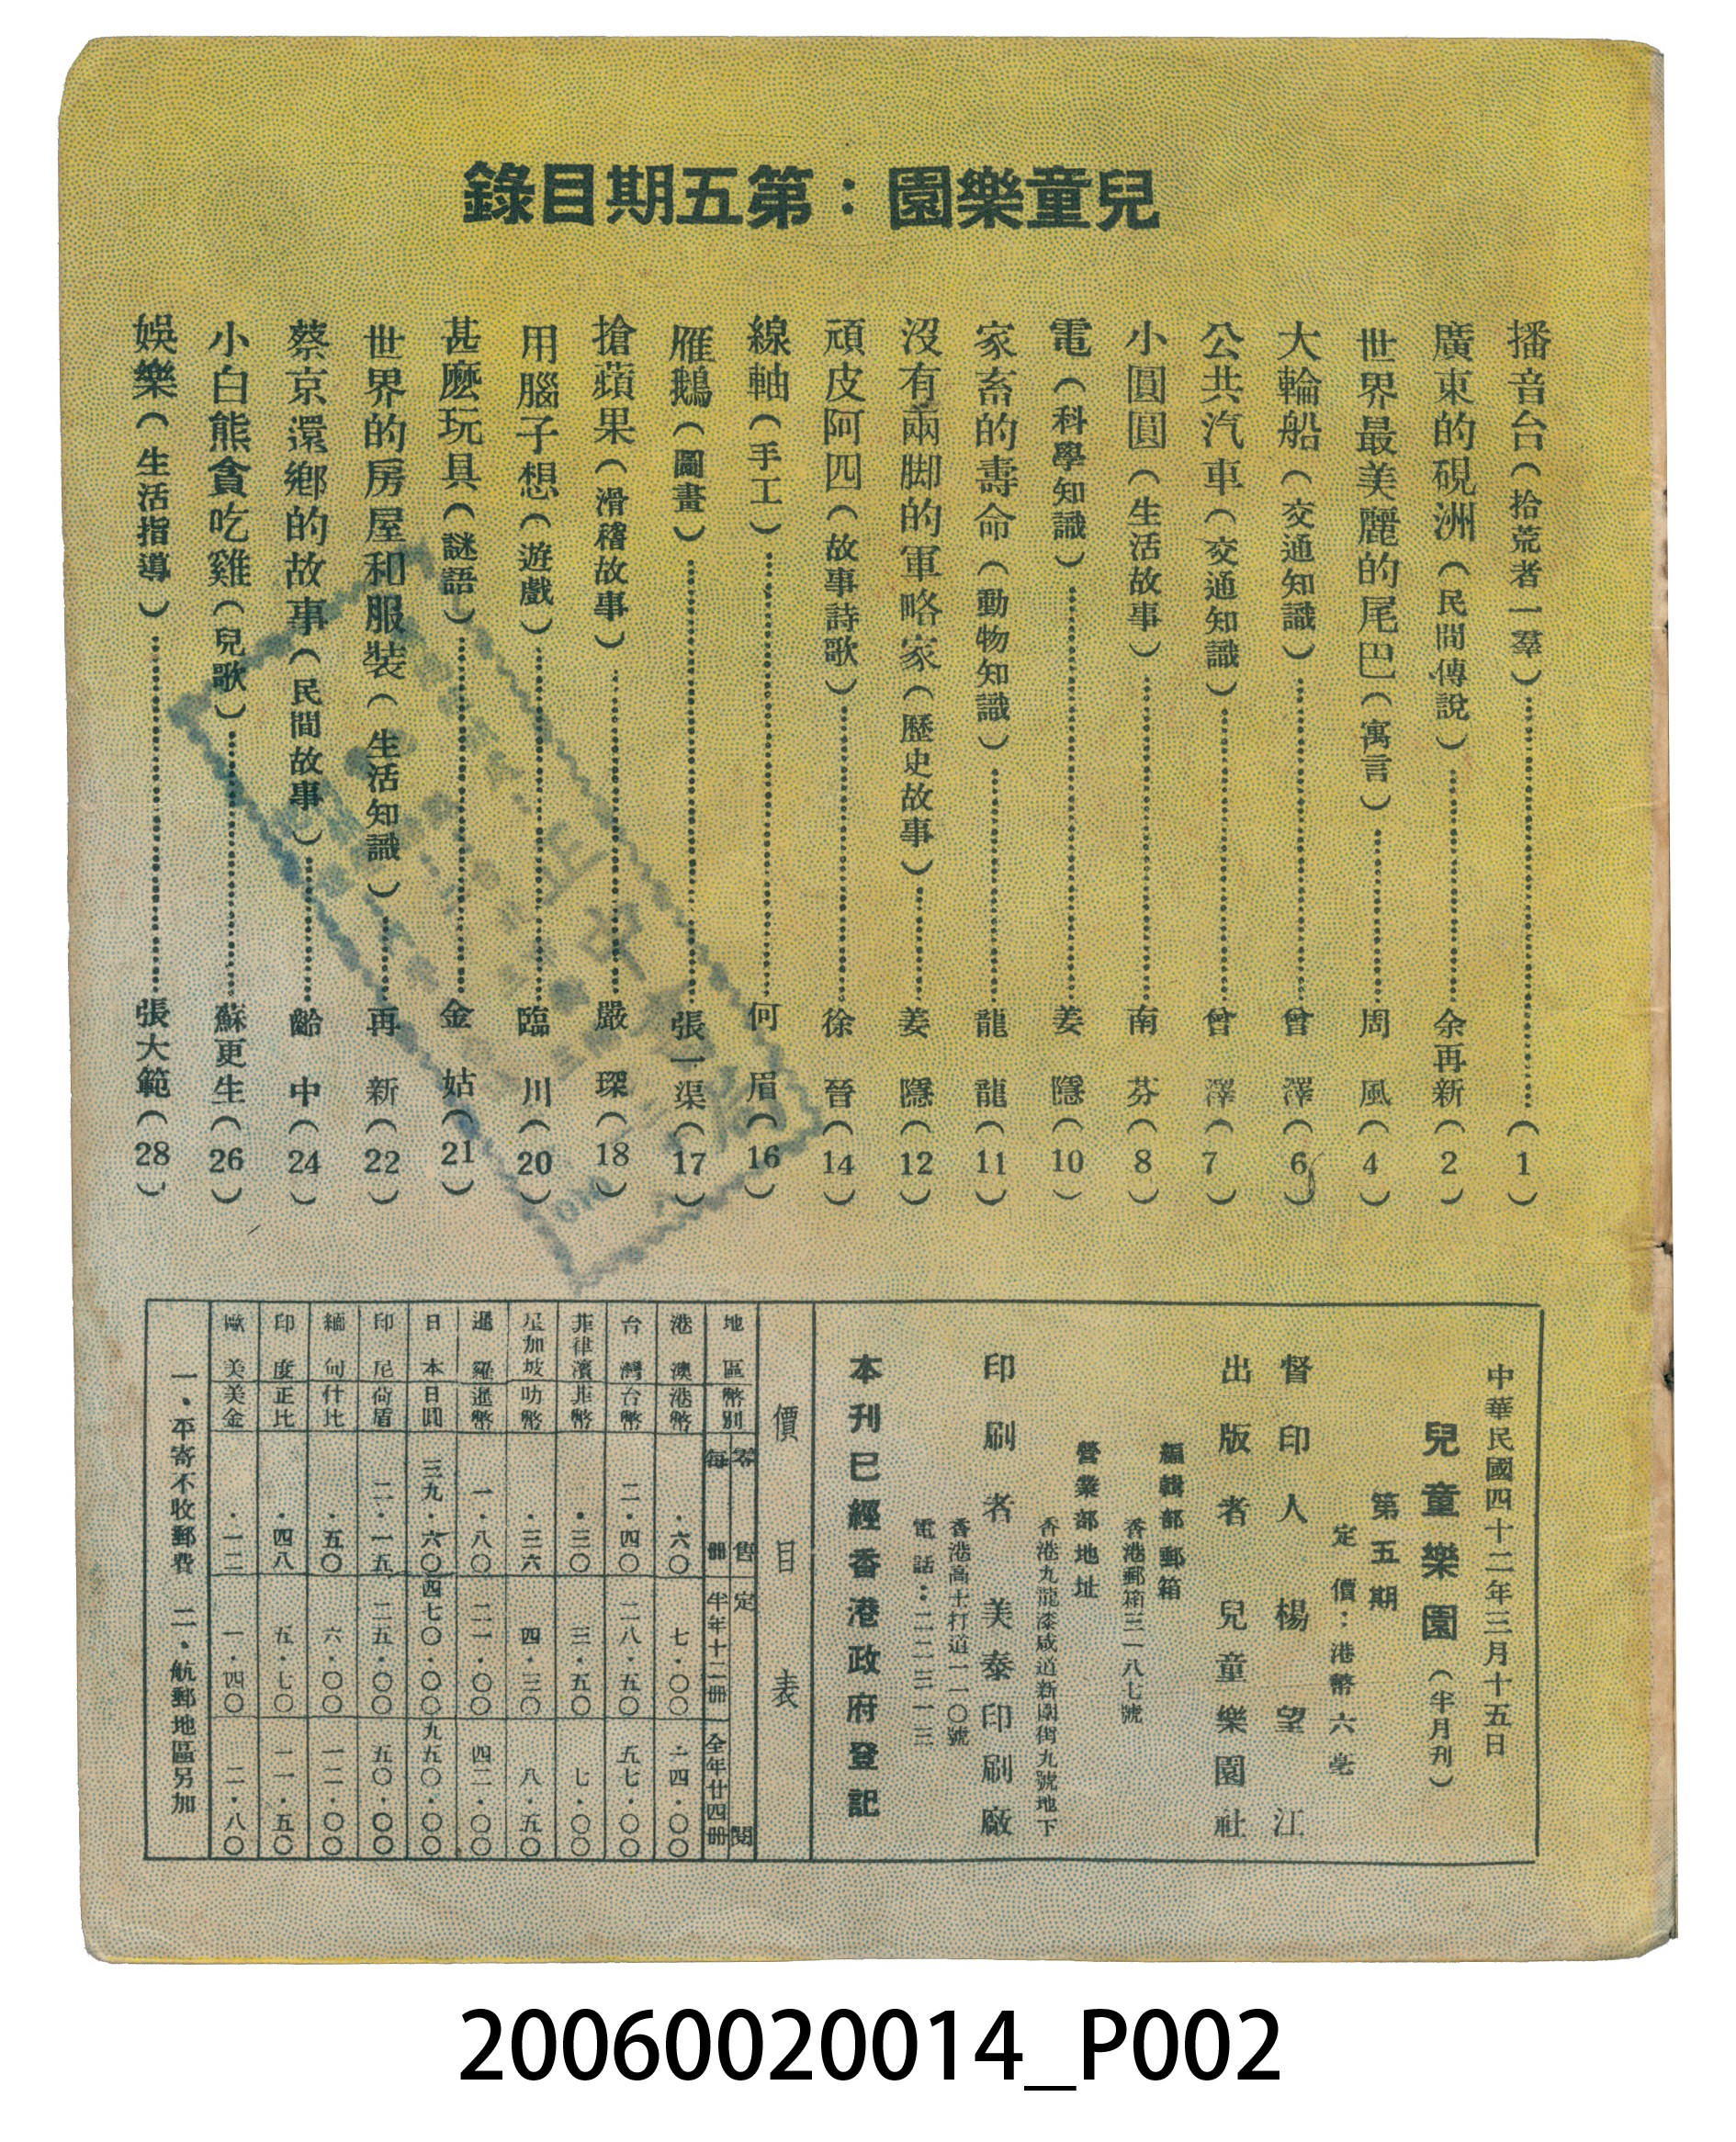 兒童樂園：第五期目錄
播音台（拾荒者一羣）（1）
廣東的硯洲（民間傳說）余再新（2）
世界最美麗的尾巴（寓言）周風（4）
大輪船（交通知識）曾澤（6）
公共汽車（交通知識）曾澤（7）
小圓圓（生活故事）南芬（8）
電（科學知識）姜隱（10）
家畜的壽命（動物知識）龍龍（11）
沒有兩脚的軍略家（歷史故事）姜隱（12）
頑皮阿四（故事詩歌）徐晉（14）
線軸（手工）何眉（16）
雁鵝（圖畫）張一渠（17）
搶蘋果（滑稽故事）嚴琛（18）
用腦子想（遊戲）臨川（20）
甚麼玩具（謎語）金姑（21）
世界的房屋和服裝（生活知識）再新（22）
蔡京還鄉的故事（民間故事）齡中（24）
小白熊貪吃雞（兒歌）蘇更生（26）
娛樂（生活指導）張大範（28）
中華民國四十二年三月十五日
兒童樂園（半月刊）
第五期
定價：港幣六毫
督印人 楊望江
出版者 兒童樂園社
編輯部郵箱
香港郵箱三一八七號
營業部地址
香港九龍漆咸道新圍街九號地下
印刷者 美泰印刷廠
香港高士打道一一〇號
電話：二二三一三
本刊已經香港政府登記
價目表
地區 幣別 零售 每冊 定閱 半年十二冊 全年廿四冊
港澳 港幣 ・六〇 七・〇〇 一四・〇〇
台灣 台幣 二・四〇 二八・五〇 五七・〇〇
菲律濱 菲幣 ・三〇 三・五〇 七・〇〇
星加坡 叻幣 ・三六 四・三〇 八・五〇
暹羅 暹幣 一・八〇 二一・〇〇 四二・〇〇
日本 日圓 三九・六〇 四七〇・〇〇 九五〇・〇〇
印尼 荷盾 二・一五 二五・〇〇 五〇・〇〇
緬甸 什比 ・五〇 六・〇〇 一二・〇〇
印度 正比 ・四八 五・七〇 一一・五〇
歐美 美金 ・一二 一・四〇 二・八〇
一・平寄不收郵費 二・航郵地區另加
正中書局
20060020014_P002